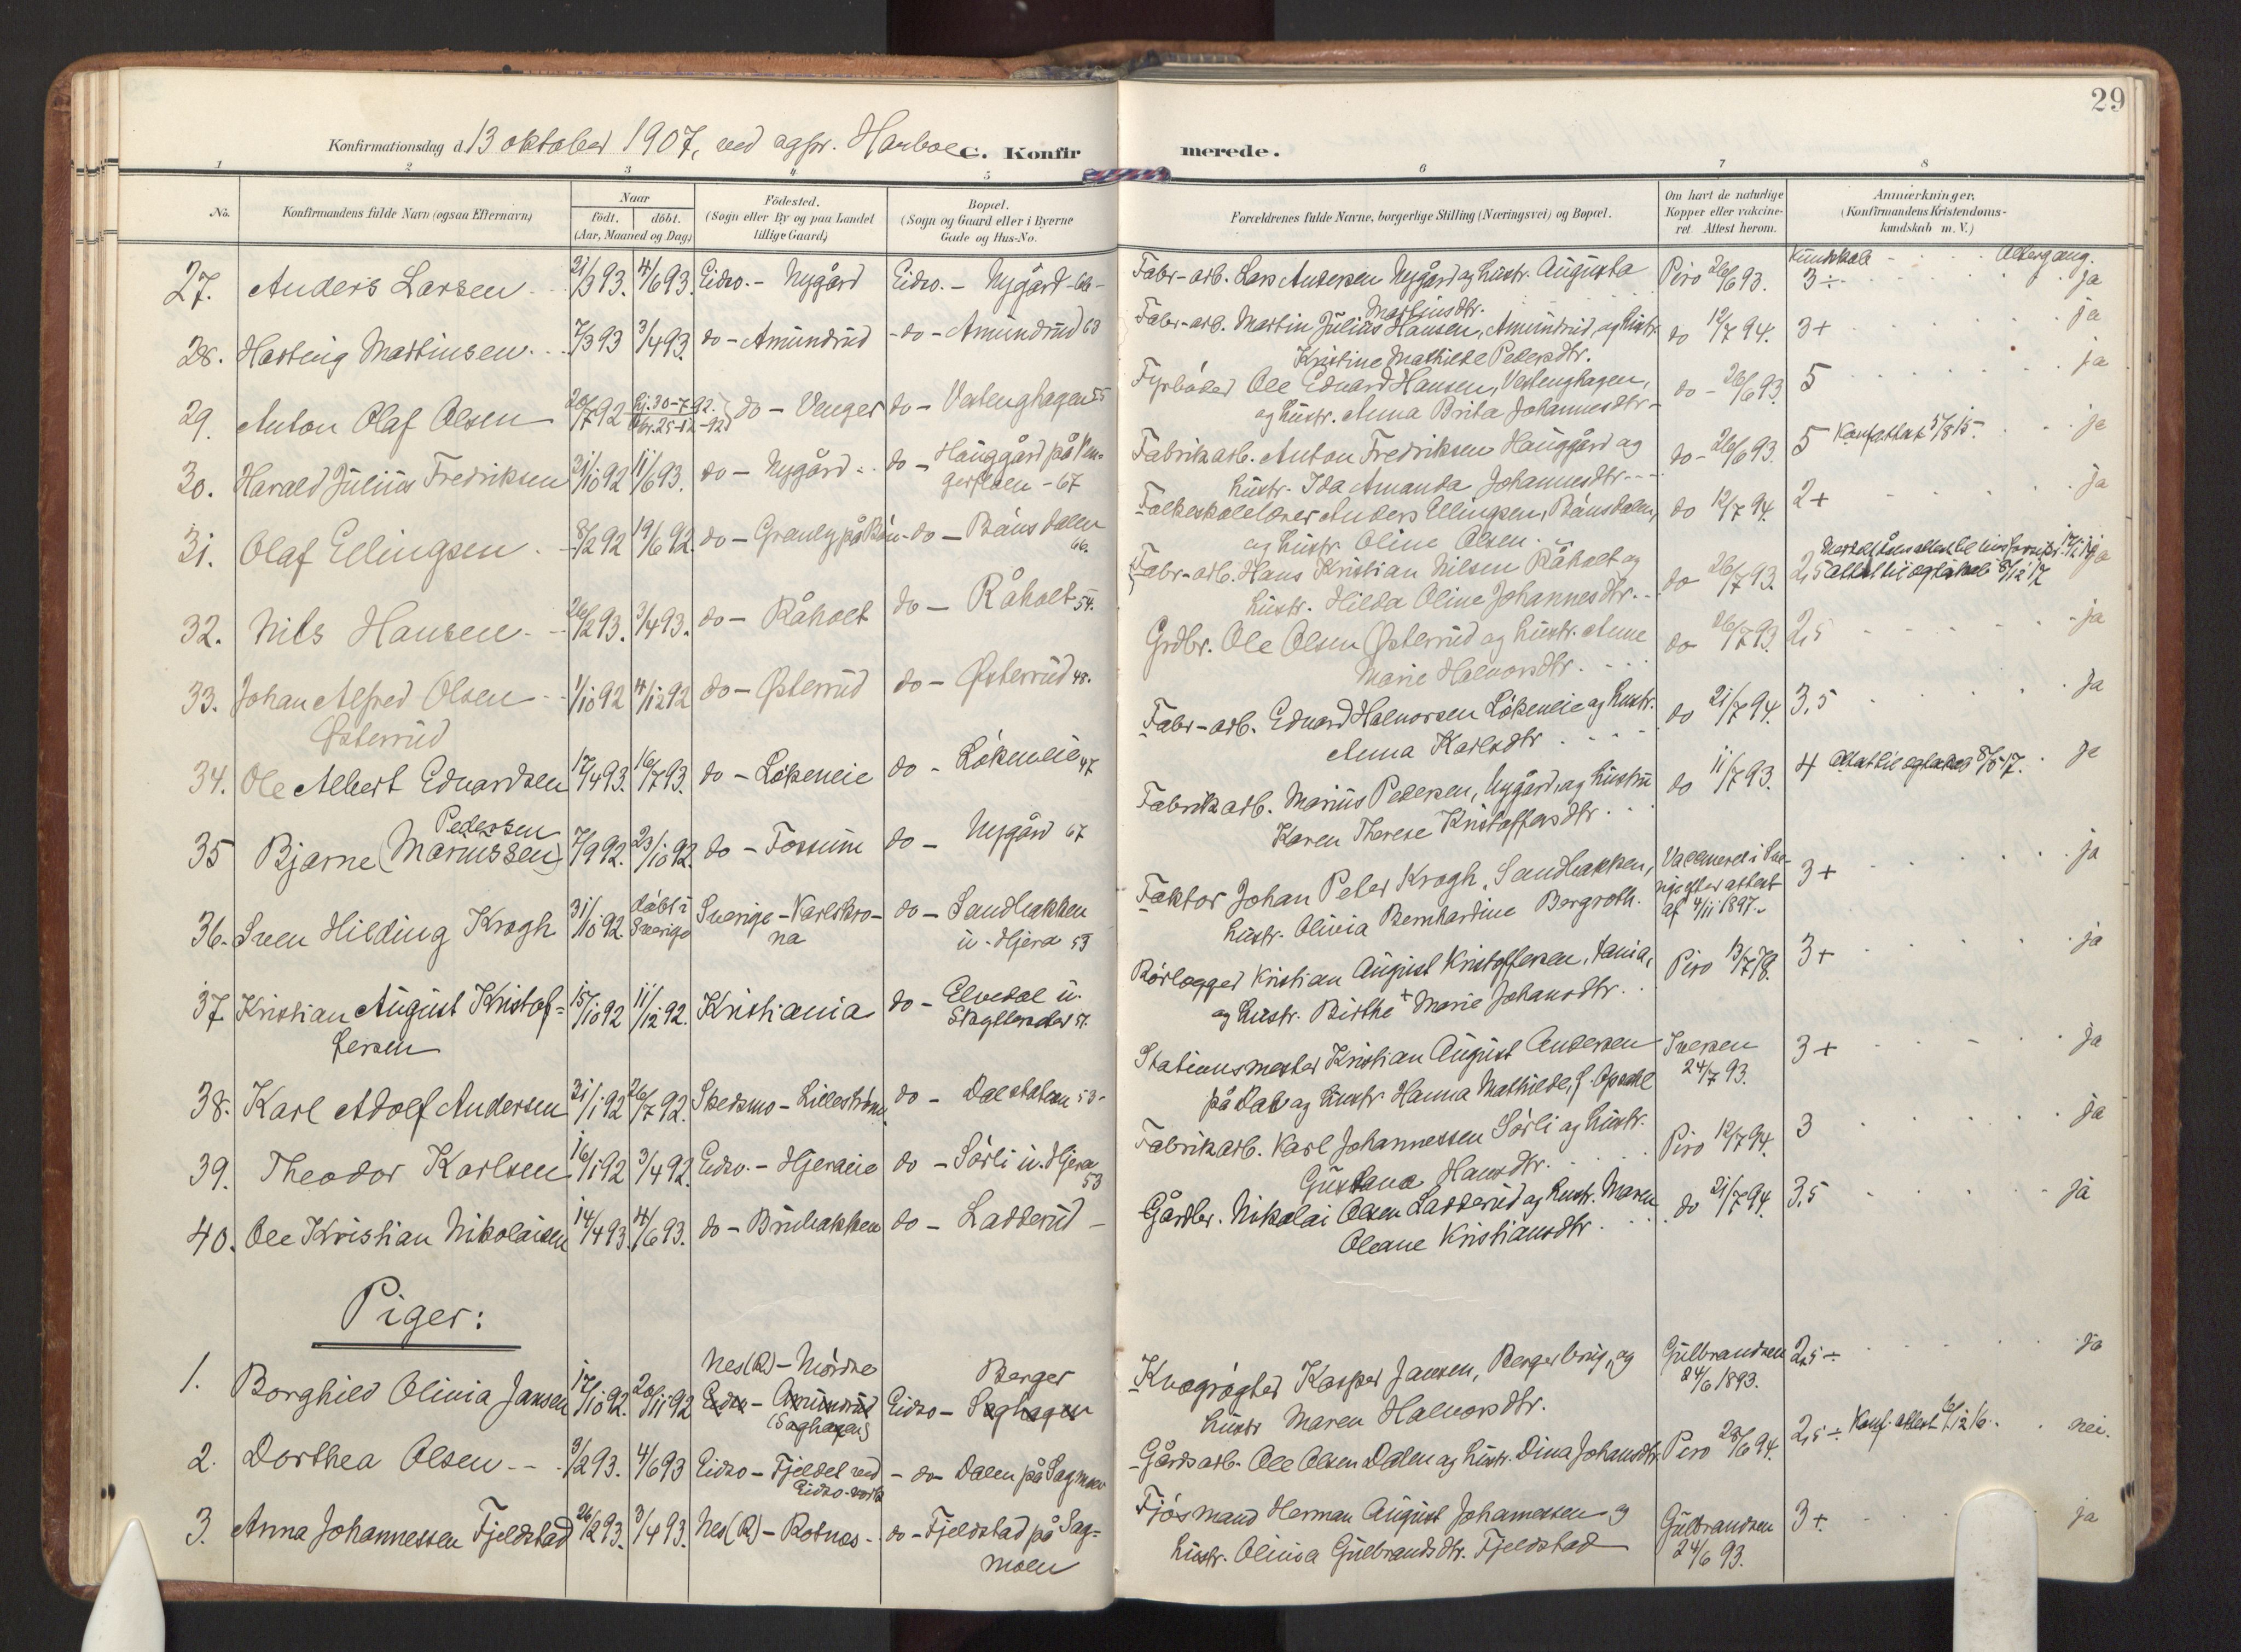 29
Konfirmationsdag d. 13 oktober 1907, ved Harboe C. Konfirmerede.
1 2 3 4 5 6 7 8
No. Konfirmandens fulde Navn (ogsaa Efternavn) Naar födt. döbt. (Aar, Maaned og Dag) Födested. (Sogn eller By og paa Landet tillige Gaard) Bopæl. (Sogn og Gaard eller i Byerne Gade og Hus-No. Forældrenes fulde Navne, borgerlige Stilling (Næringsvei) og Bopæl. Om havt de naturlige Kopper eller vakcineret. Attest herom. Anmærkninger. (Konfirmandens Kristendomskundskab m. V.)
Kundskab Altergang.
27. Anders Larsen 21/3 93. 4/6 93. Eidsv. - Nygård Eidsv. - Nygård - 66 - Fabr-arb. Lars Andersen Nygård og hustr. Augusta Piro 26/6 93. 3÷ ja
Martinsdtr.
28. Hartvig Martinsen 7/3 93 3/4 93. do - Amundrud - do - Amundrud 63 Fabr-arb. Martin Julius Hansen, Amundrud, og hustr. do 12/7 94. 3+ ja
Kristine Mathilde Pedersdtr.
29. Anton Olaf Olsen 20/7 92 Hj. 30-7-92. do - Venger do - Vestenghagen 55 Fyrbøder Ole Edvard Hansen, Vestenghagen, do - 26/6 93. 5 ja
og hustr. Anna Brita Johannesdtr.
30. Harald Julius Fredriksen 31/10 92 11/6 93. do - Nygård do - Hauggård på Ven-
gerfloen - 67 Fabrikarb. Anton Fredriksen Hauggård og do - 26/6 93. 5 Konf. attest 5/8 15. ja
hustr. Ida Amanda Johannesdtr.
31. Olaf Ellingsen 8/2 92 19/6 92. do - Granly på Bån. do - Bånsdalen
66. Folkeskolelærer Anders Ellingsen, Bånsdalen, do 12/7 94. 2+ ja
og hustr. Oline Olsen
32. Nils Hansen 26/2 93. 3/4 93. do - Råholt do - Råholt 54. Fabr-arb. Hans Kristian Nilsen Råholt og do 26/7 93. 2,5 attest til ægteskab 8/12 17 ja
hustr. Hilda Oline Johannesdtr.
33. Johan Alfred Olsen 1/10 92 4/12 92 do - Østerrud do - Østerrud 48. Grdbr. Ole Olsen Østerrud og hustr. Anne do 26/7 93. 2,5 ja
Østerrud Marie Halvorsdtr.
34. Ole Albert Edvardsen 17/4 93. 16/7 93. do - Løkeneie do - Løkeneie 47 Fabr-arb. Edvard Halvorsen Løkeneie og hustr. do 21/7 94. 3,5 ja
Anna Karlsdtr
Pedersen
35 Bjarne (Mariussen) 7/9 92. 23/10 92. do - Fossum do - Nygård 67 Fabrikarb. Marius Pedersen, Nygård, og hustru do 11/7 93. 4 Attest til ægteskab 8/5 17. ja
Karen Therese Kristoffersdtr.
36. Sven Hilding Krogh 31/10 92. døbt i Sverige Sverige - Karlskro-
na do - Sandbakken
u. Hjera 53 Faktor Johan Peter Krogh, Sandbakken, Vaccineret i Sve-
rige efter attest
af 4/11 1897. 3+ ja
hustr. Olivia Bernhardine Bergroth.
37. Kristian August Kristof-
fersen 15/10 92 11/12 92. Kristiania do - Elvedal u.
Skytterader 51. Rørlægger Kristian August Kristoffersen, Piro 13/7 3+ ja
og hustr. Birthe + Marie Johansdtr.
38. Karl Adolf Andersen 31/1 92 26/7 92. Skedsmo - Lillestrøm do - Dal station 53. Stationsmester Kristian August Andersen Iversen 24/7 93. 3+ ja
på Dal og hustr. Hanna Mathilde, f. Opsahl
39. Theodor Karlsen 16/1 92 3/4 92. Eidsv. - Hjeraeie do - Sørli u. Hjera
53 Fabrikarb. Karl Johannessen Sørli og hustr. Piro 12/7 94. 3 ja
Gustava Hansdtr.
40. Ole Kristian Nikolaisen 14/4 93. 4/6 93. do - Brubakken do - Ladderud - Gårdbr. Nikolai Olsen Ladderud og hustr. Maren do 21/7 94. 3,5 ja
Oleane Kristiansdtr.
Piger:
1. Borghild Olivia Jansen 17/10 92. 20/11 92 Nes (R) - Mørdre
Eidsv - Amundrud
(Saghagen) Berger
Eidsv - Saghagen Kvægrøgter Kasper Jansen, Berger brug, og Gulbrandsen 24/6 1893. 2,5÷ ja
hustr Maren Halvorsdtr.
2. Dorthea Olsen 3/2 93. 4/6 93 Eidsv - Fjeldet ved
Eidsv-verk - do - Dalen på Sagmoen Gårdsarb. Ole Olsen Dalen og hustr. Dina Johansdtr. Piro 28/6 94. 2,5÷ Konf. attest 6/12 16. nei.
3. Anna Johannessen Fjeldstad 26/2 93. 3/4 93. Nes (R) - Rotnes do - Fjeldstad på Sag-
moen Fjøsmand Herman August Johannessen og Gulbrandsen 24/6 93. 3+ ja
hustr. Olivia Gulbrandsdtr. Fjeldstad